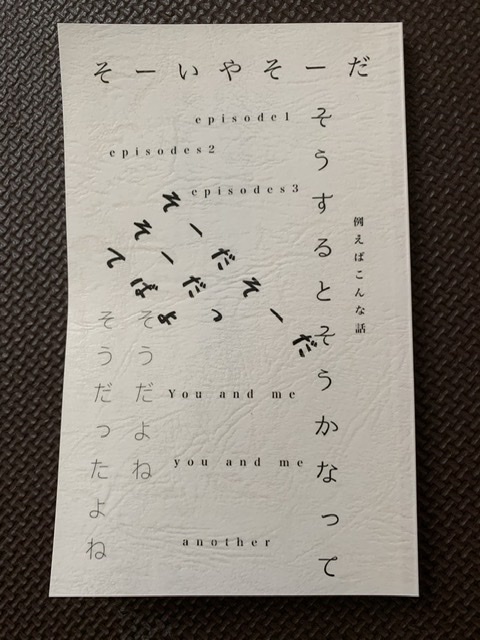 そーいやそーだ
例えばこんな話
そうするとそうかなって
episode1
episodes2
episodes3
そーだそーだ
そーだっ
てばよ
You and me
you and me
another
そうだよね
そうだったよね